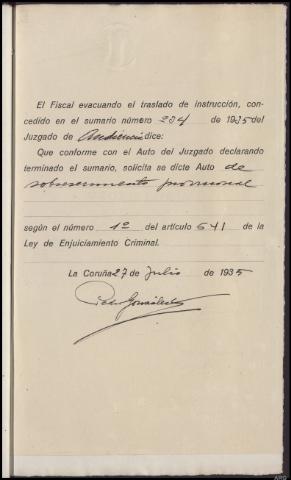 El Fiscal evacuando el traslado de instrucción, con-
cedido en el sumario número 204 de 1935 del
Juzgado de Audiencia dice:
Que conforme con el Auto del Juzgado declarando
terminado el sumario, solicita se dicte Auto de
sobreseimiento provisional
según el número 1º del artículo 641 de la
Ley de Enjuiciamiento Criminal.
La Coruña 27 de Julio de 1935